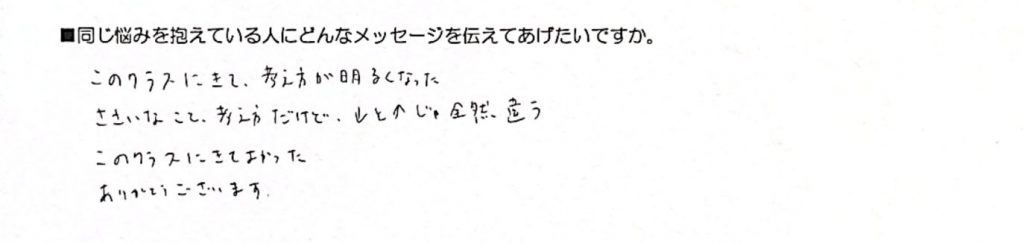 ■同じ悩みを抱えている人にどんなメッセージを伝えてあげたいですか。
このクラスにきて、考え方が明るくなった
ささいなこと、考え方だけど、↓と↑じゃ全然違う
このクラスにきてよかった
ありがとうございます.